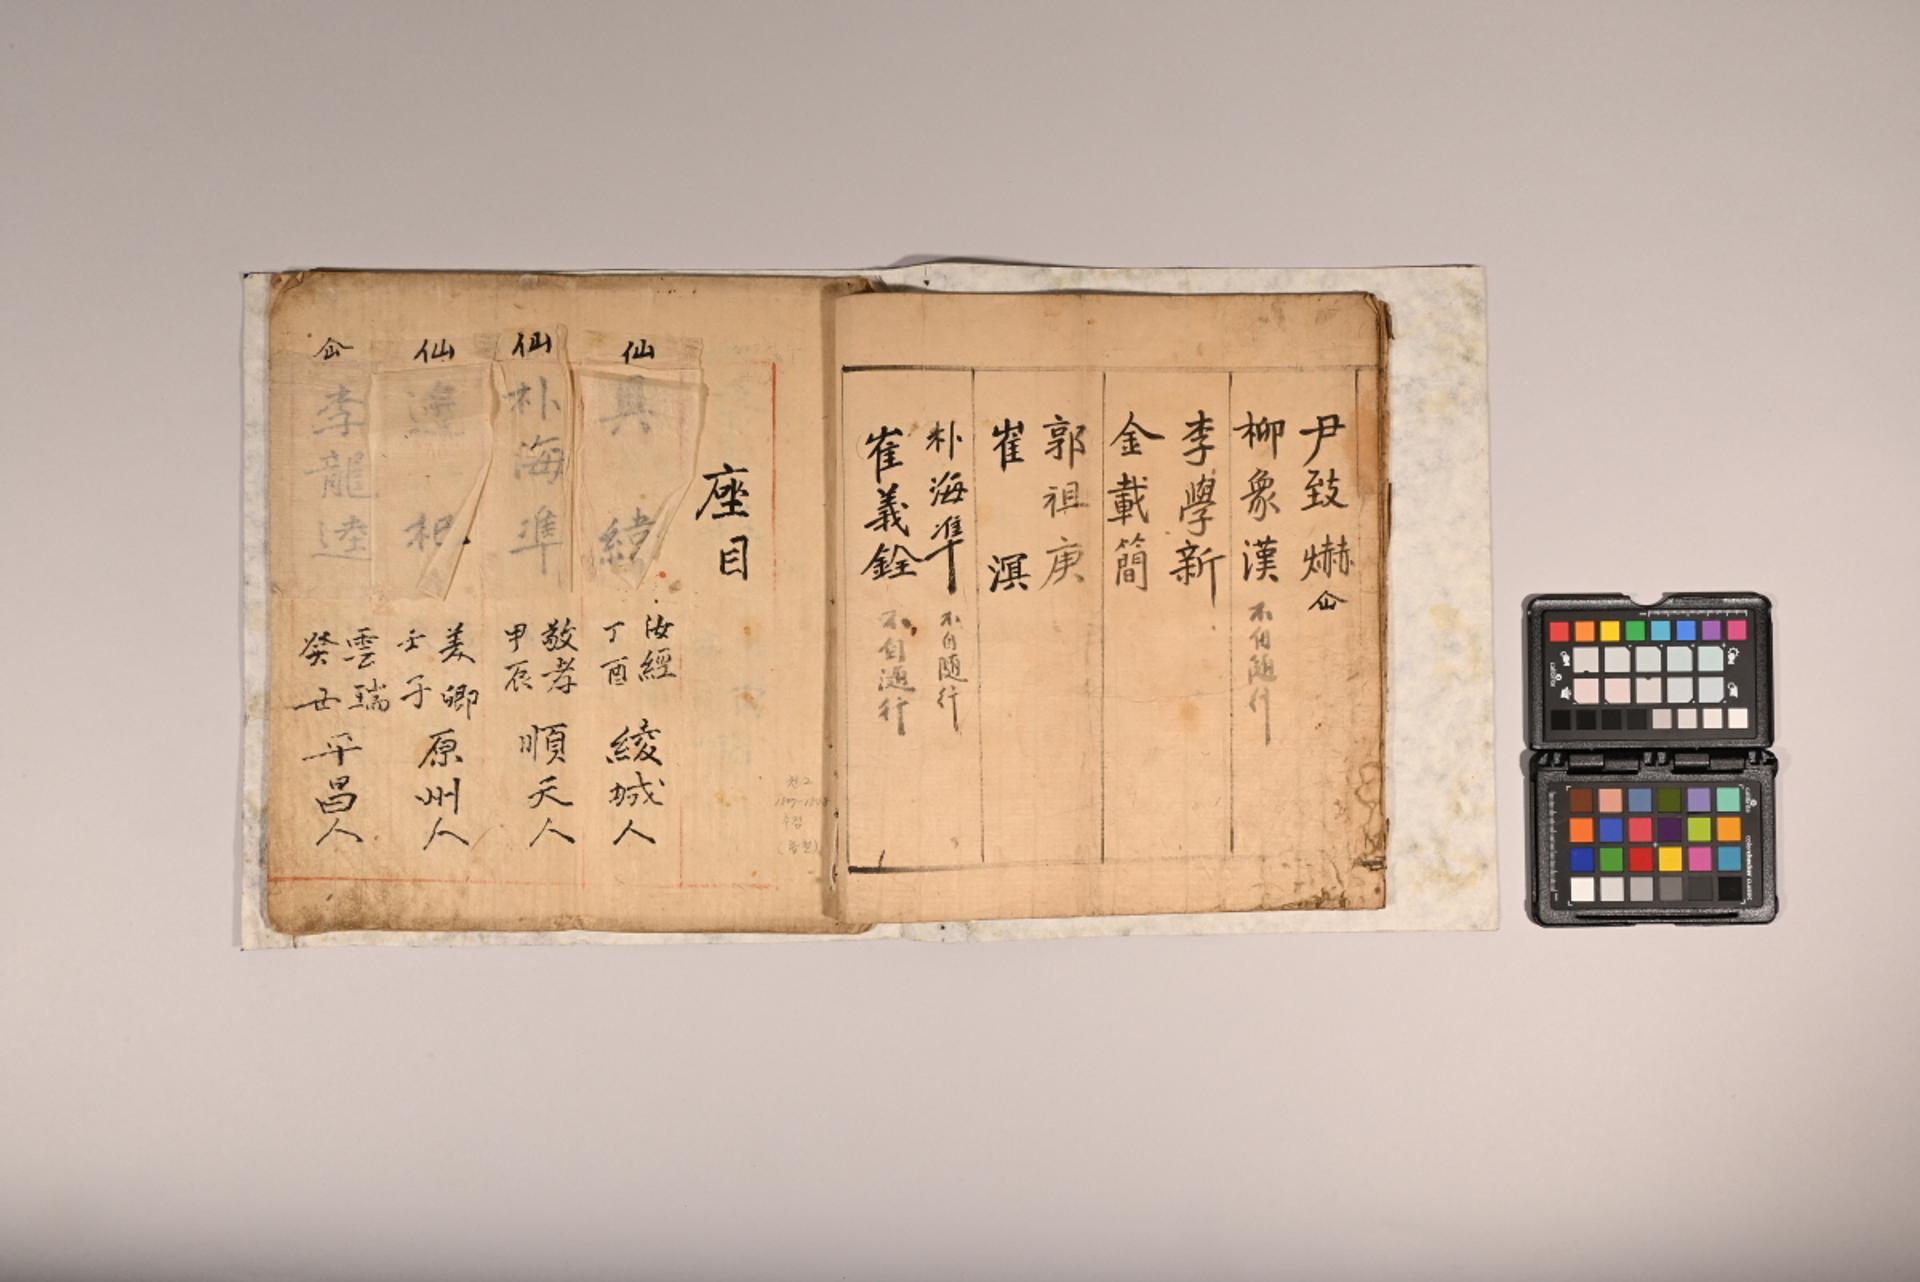 尹致爀 仚
柳象漢 不自隨行
李學新
金載簡
郭祖庚
崔 溟
朴海準 不自隨行
崔義銓 不自隨行
座目
仙 具 緯 汝經 丁酉 綾城人
仙 朴海準 敬孝 甲辰 順天人
仙 邊 杞 美卿 壬子 原州人
仚 李龍逵 雲瑞 癸丑 平昌人